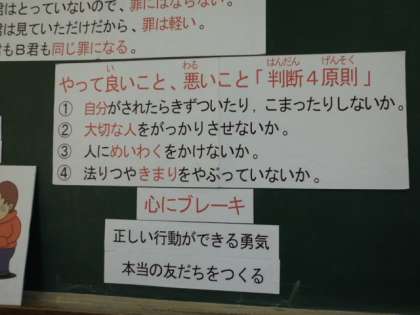 君はとっていないので、罪にはならない。
君は見ていただけだから、罪は軽い。
君もB君も同じ罪になる。
やって良いこと、悪いこと「判断4原則」
① 自分がされたらきずついたり，こまったりしないか。
② 大切な人をがっかりさせないか。
③ 人にめいわくをかけないか。
④ 法りつやきまりをやぶっていないか。
心にブレーキ
正しい行動ができる勇気
本当の友だちをつくる